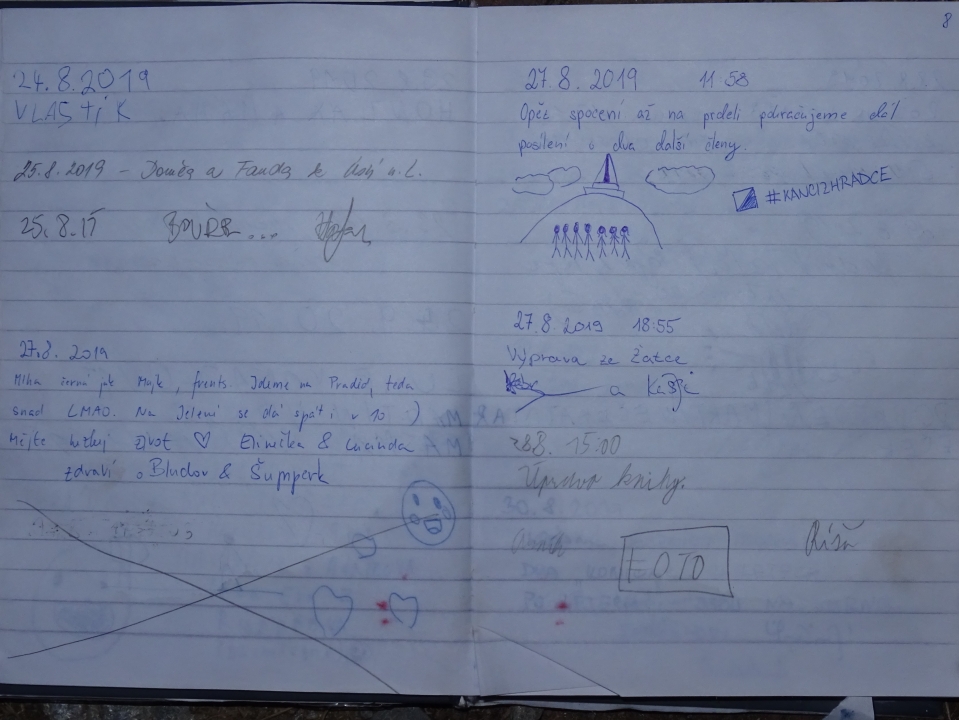 24.8.2019
VLASŤJK
25.8.2019 - Domča a Fanda z Ústí n. L.
25.8.15 BOUŘE...
27.8. 2019
Mlha černá jak , frents. Jdeme na Praděd, teda
snad LMAO. Na Jelení se dá spát i v 10 :)
Mějte hezkej život ♡ Elinečka & Lucinda
zdraví Bludov & Šumperk
8
27.8. 2019 11:58
Opěz spocení až na prdeli pokračujeme dál
posílení o dva další členy.
#KANCIZHRADCE
27.8.2019 18:55
Výprava ze Žatce
a
28.8. 15:00
Úprava knihy.
FOTO
Ríša